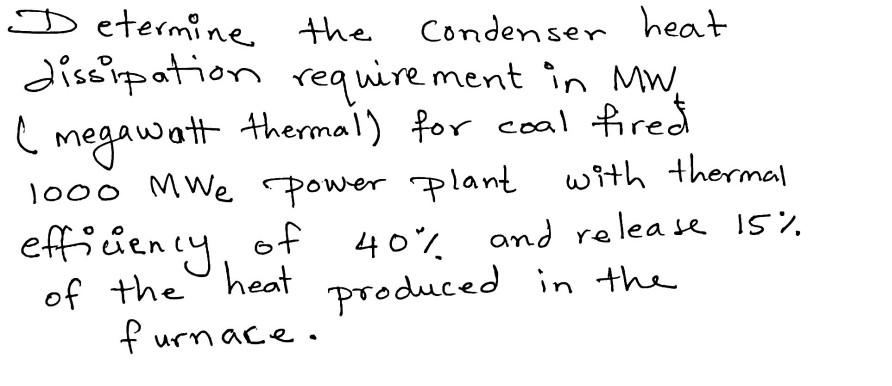 Determine the condenser heat
dissipation requirement in MWt
(megawatt thermal) for coal fired
1000 MWe power plant with thermal
efficiency of 40% and release 15%
of the heat produced in the
furnace.